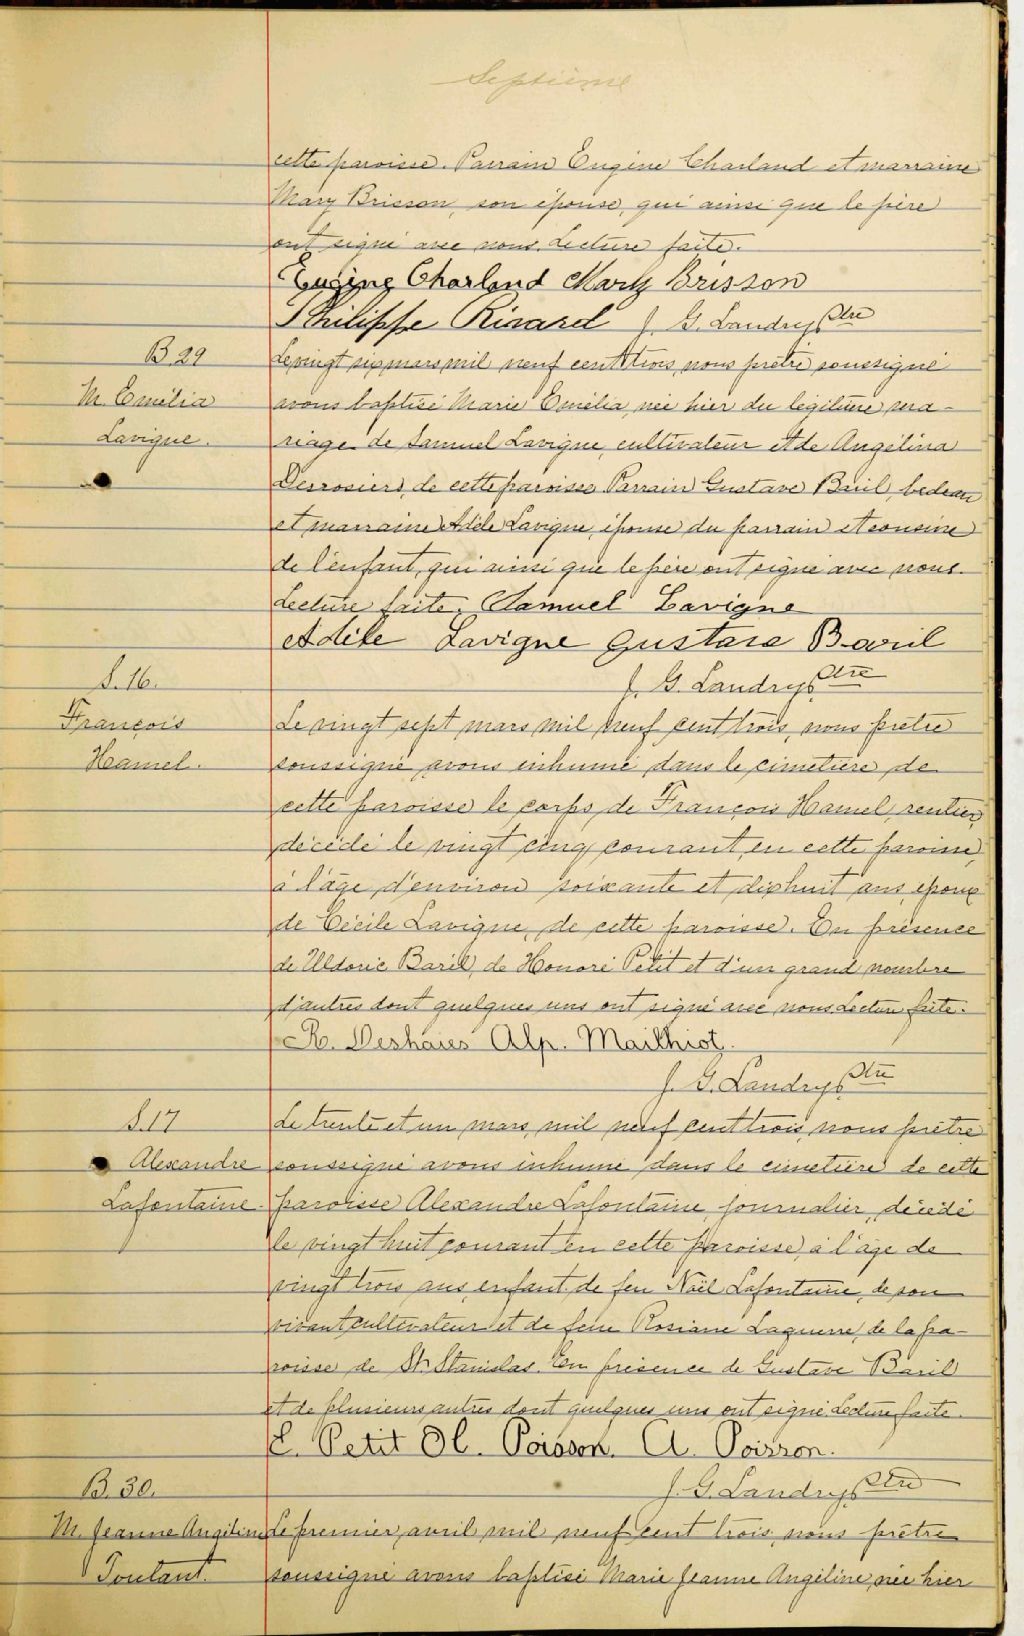 Septième
cette paroisse. Parrain Eugène Charland et marraine
Mary Brisson, son épouse, qui ainsi que le père
ont signé avec nous. Lecture faite.
Eugène Charland Mary Brisson
Philippe Ricard J. G. Landry Ptre
B 29
M. Emélia
Lavigne.
Le vingt six mars mil neuf cent trois, nous prêtre soussigné
avons baptisé Marie Emélia, née hier du légitime ma-
riage de Samuel Lavigne, cultivateur et de Angélina
Desrosiers, de cette paroisse Parrain Gustave Baril, bedeau
et marraine Adèle Lavigne, épouse du parrain et cousine
de l'enfant, qui ainsi que le père ont signé avec nous.
Lecture faite. Samuel Lavigne
Adèle Lavigne Gustave Baril
J. G. Landry Ptre
S. 16.
François
Hamel.
Le vingt sept mars mil neuf cent trois, nous prêtre
soussigné avons inhumé dans le cimetière de
cette paroisse le corps de François Hamel, rentier,
décédé le vingt cinq courant, en cette paroisse,
à l'âge d'environ soixante et dixhuit ans, époux
de Cécile Lavigne, de cette paroisse. En présence
de Uldoric Baril, de Honoré Petit et d'un grand nombre
d'autres dont quelques uns ont signé avec nous. Lecture faite.
R. Deshaies Alp. Mailhiot.
J. G. Landry Ptre
S. 17
Alexandre
Lafontaine.
Le trente et un mars, mil neuf cent trois, nous prêtre
soussigné avons inhumé dans le cimetière de cette
paroisse Alexandre Lafontaine, journalier, décédé
le vingt huit courant en cette paroisse, à l'âge de
vingt trois ans, enfant de feu Naël Lafontaine, de son
vivant cultivateur et de feue Rosiane Laguerre, de la pa-
roisse de St. Stanislas. En présence de Gustave Baril
et de plusieurs autres dont quelques uns ont signé Lecture faite.
E. Petit Ol. Poisson. A. Poisson.
J. G. Landry Ptre
B. 30.
M. Jeanne Angéline
Toutant.
Le premier avril mil neuf cent trois, nous prêtre
soussigné avons baptisé Marie Jeanne Angéline, née hier